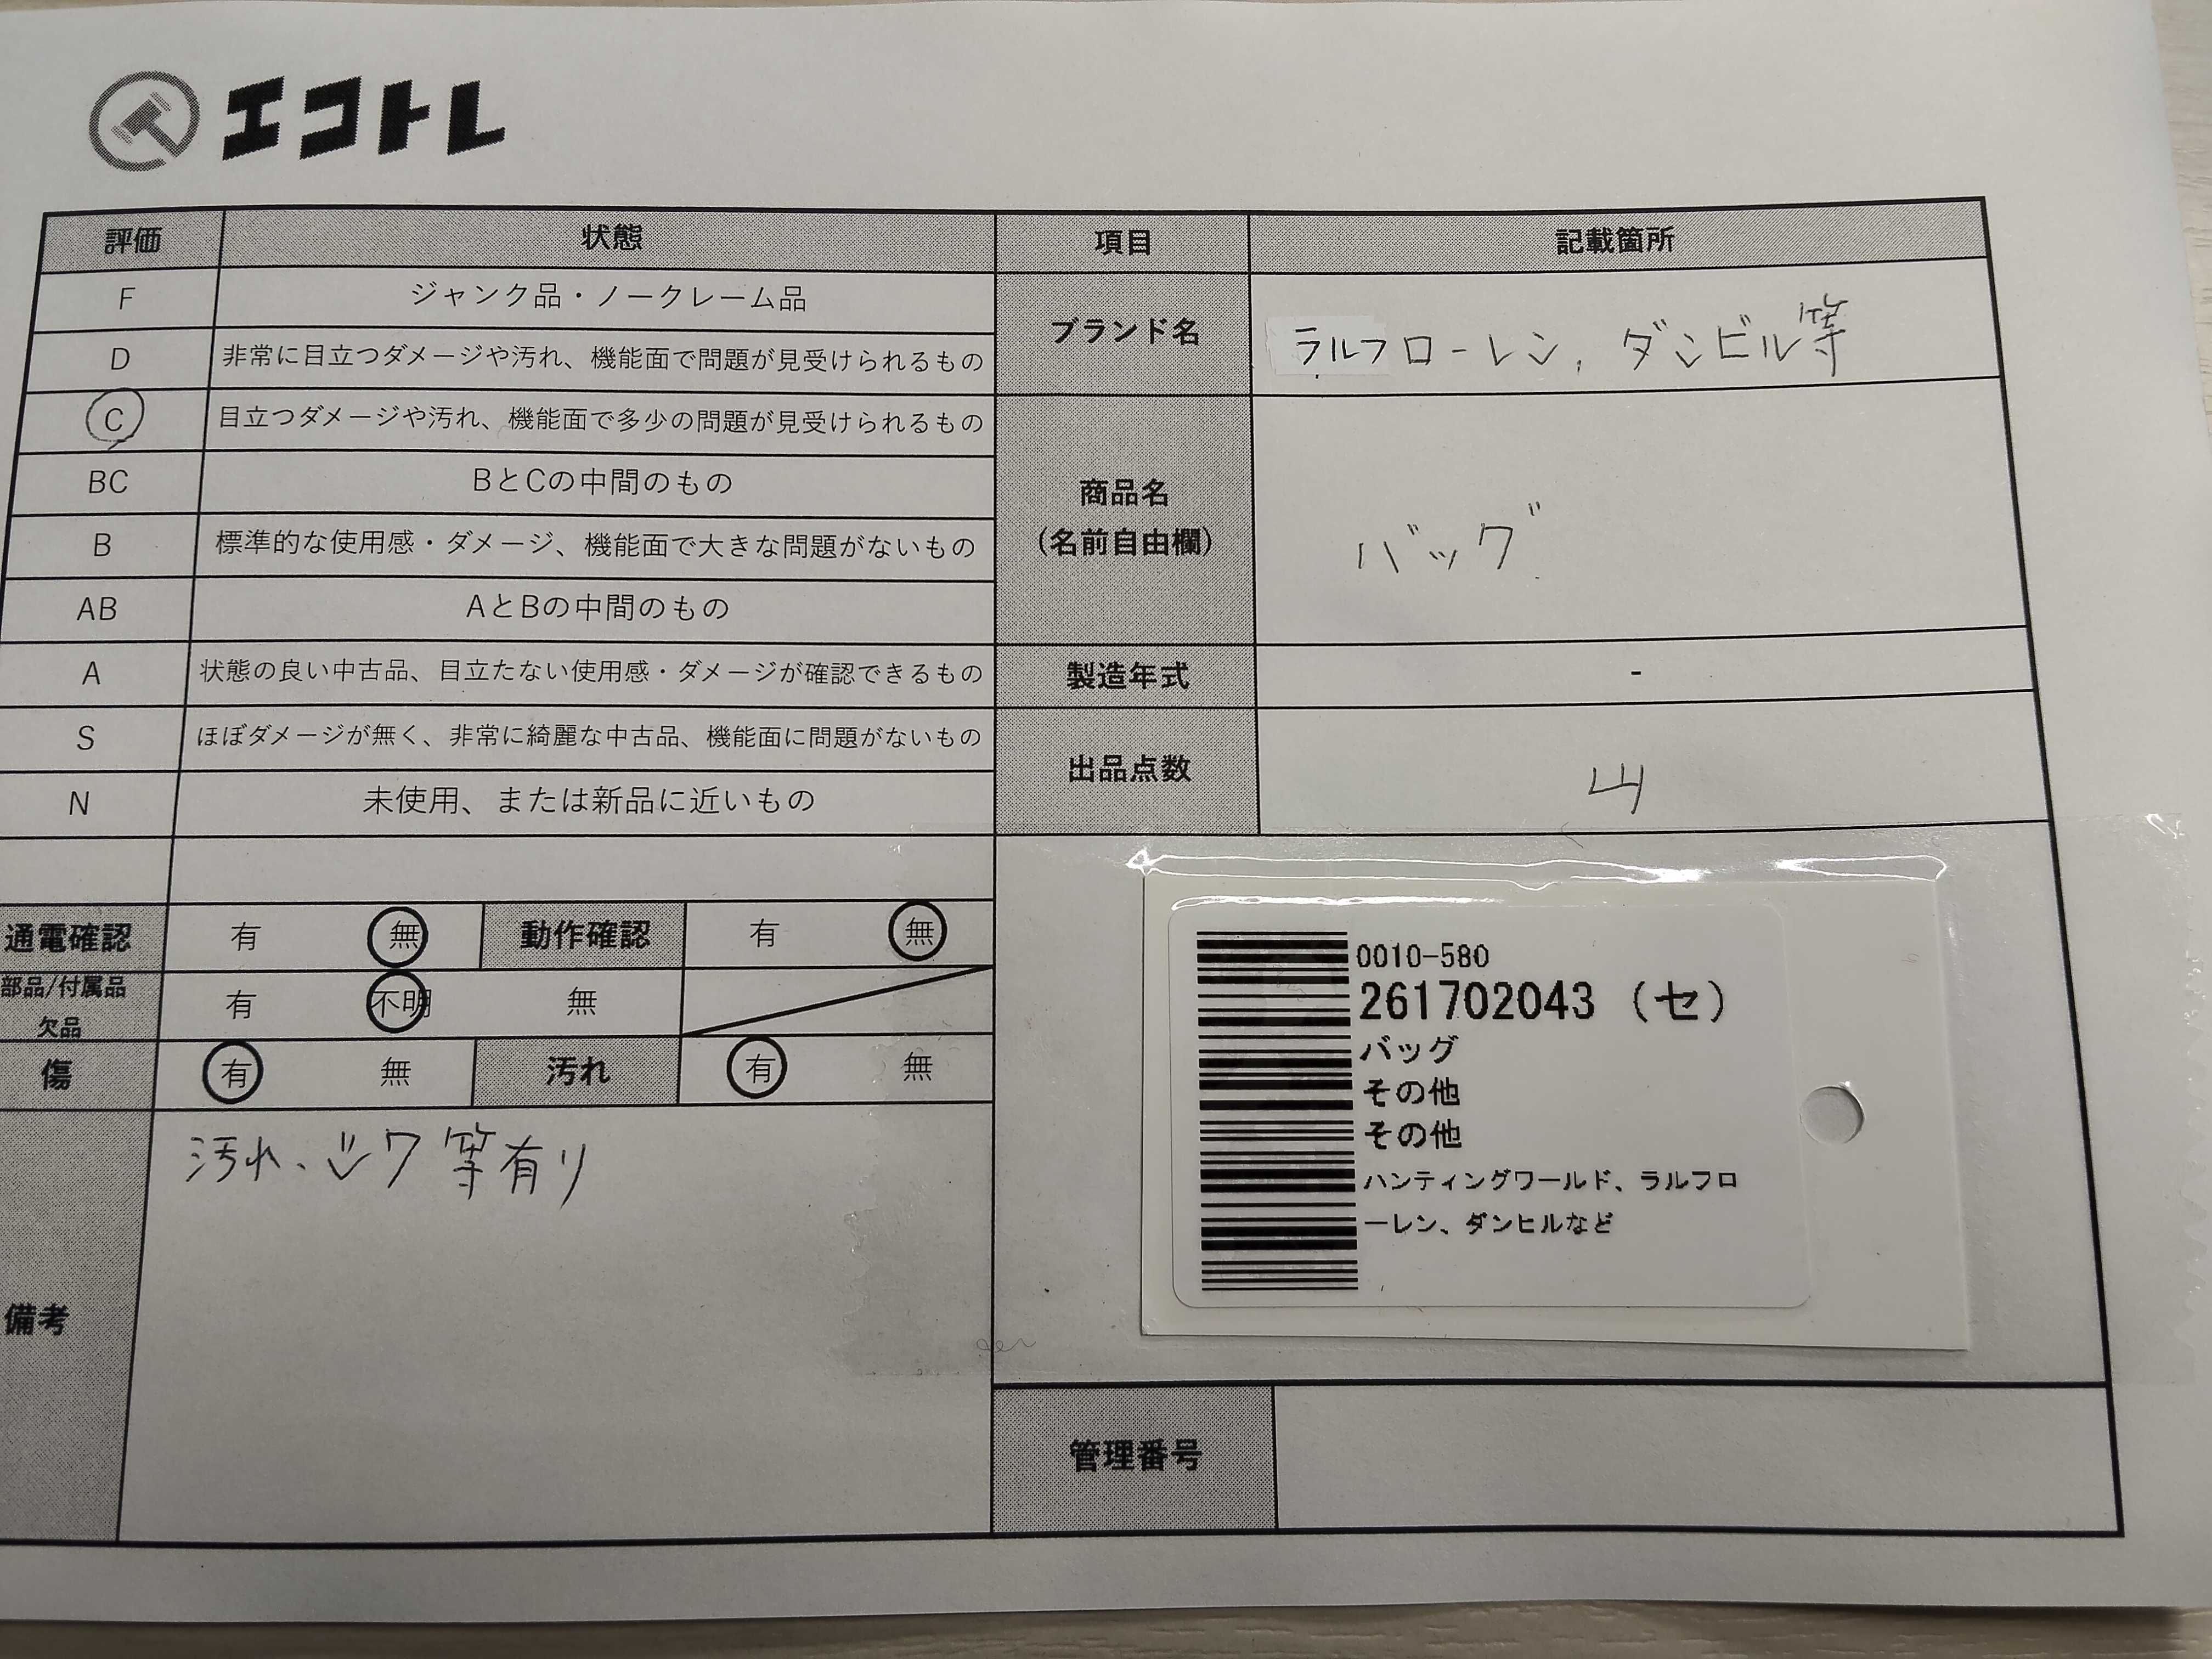 エコトレ
評価 状態 項目 記載箇所
F ジャンク品・ノークレーム品
D 非常に目立つダメージや汚れ、機能面で問題が見受けられるもの
ブランド名 ラルフローレン、ダンビル等
C 目立つダメージや汚れ、機能面で多少の問題が見受けられるもの
BC BとCの中間のもの
B 標準的な使用感・ダメージ、機能面で大きな問題がないもの
AB AとBの中間のもの
商品名
(名前自由欄)
バッグ
A 状態の良い中古品、目立たない使用感・ダメージが確認できるもの
製造年式 -
S ほぼダメージが無く、非常に綺麗な中古品、機能面に問題がないもの
N 未使用、または新品に近いもの
出品点数 山
通電確認 有 無 動作確認 有 無
部品/付属品
欠品
有 不明 無
傷 有 無 汚れ 有 無
備考
汚れ、シワ等有り
0010-580
261702043 (セ)
バッグ
その他
その他
ハンティングワールド、ラルフロ
ーレン、ダンヒルなど
管理番号